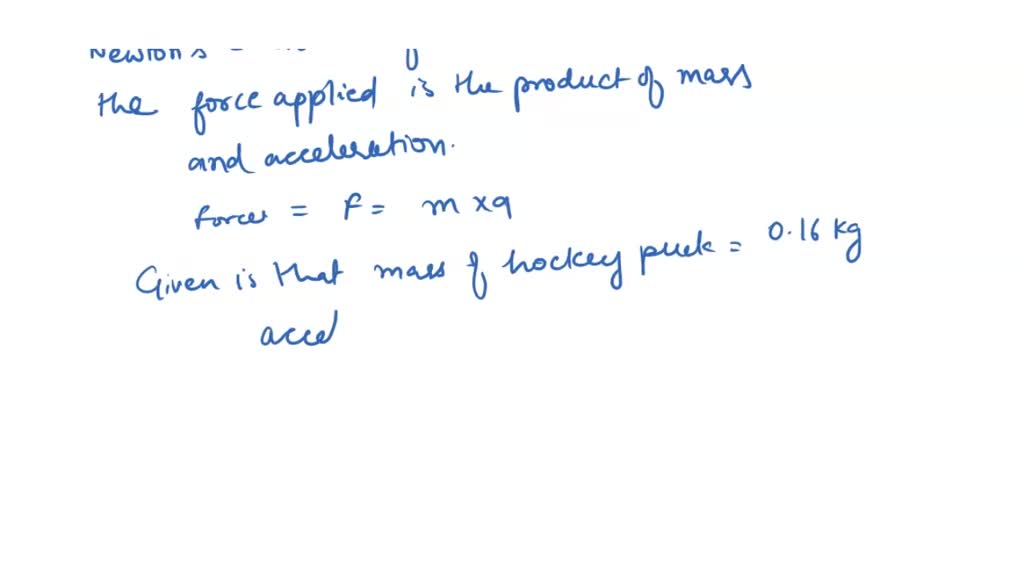 Newton's
the force applied is the product of mass
and acceleration.
force = F = m x a
Given is that mass of hockey puck = 0.16 kg
accel